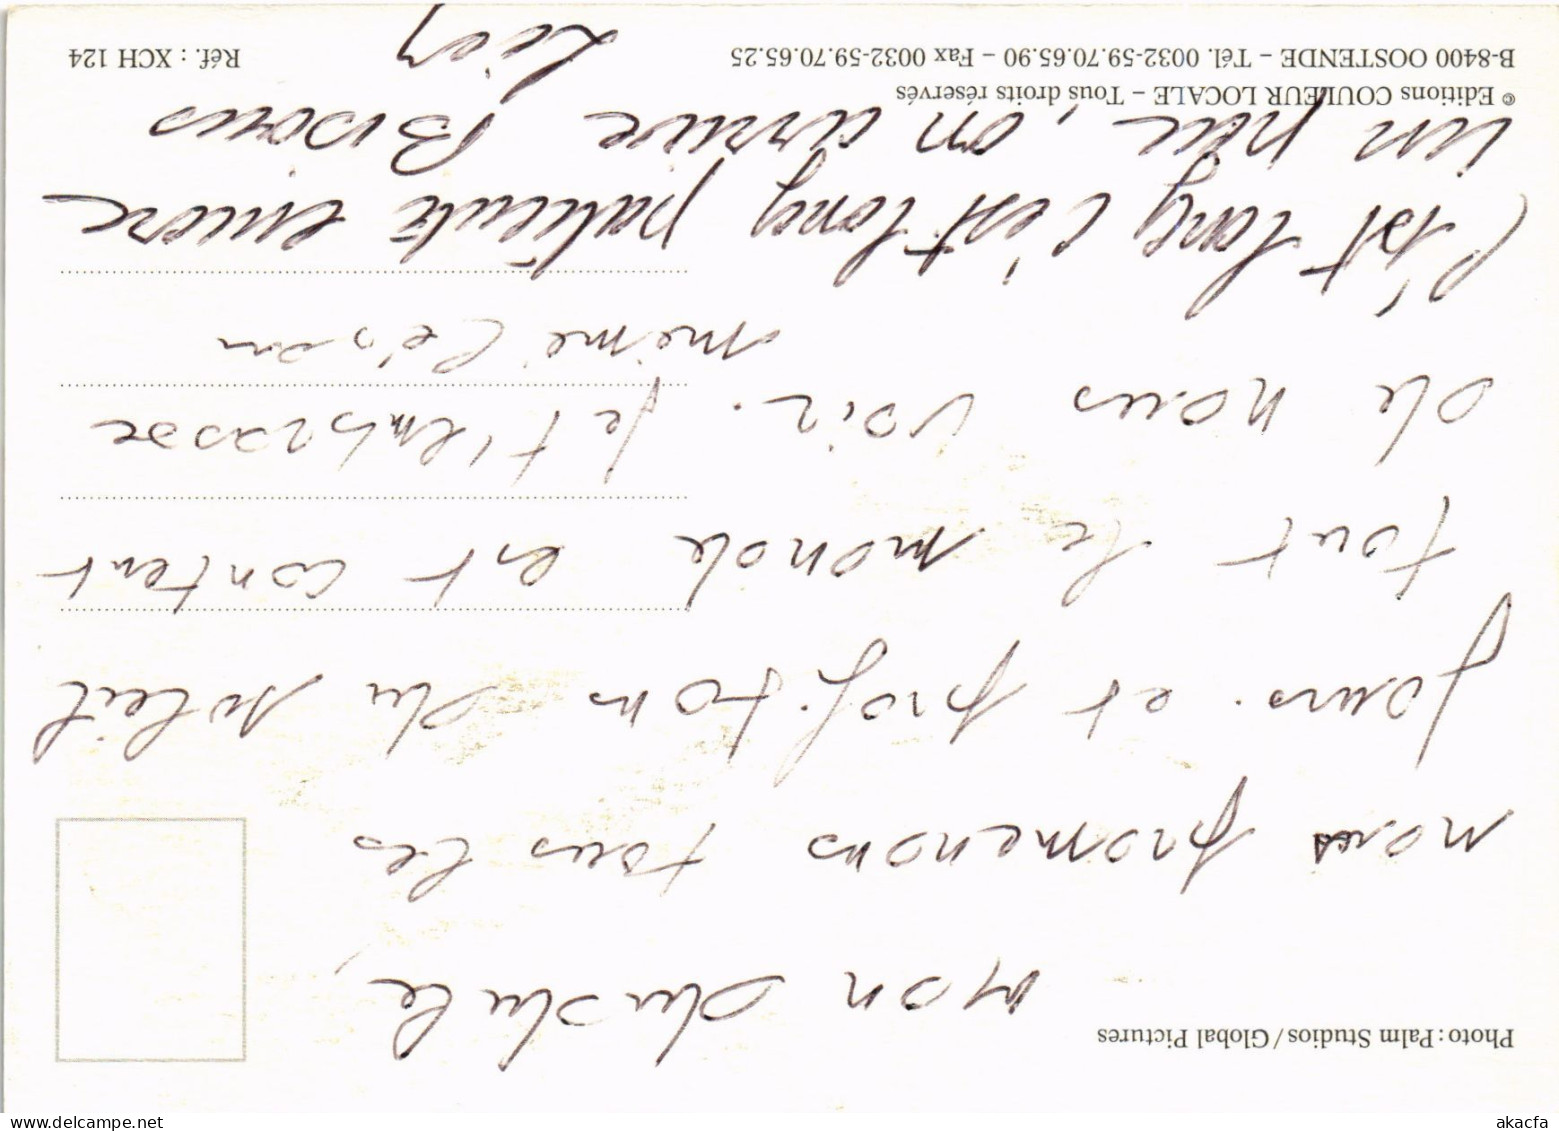 Photo: Palm Studios/Global Pictures
Mon
nous promenons tous les
jours. et profitons du soleil
tout le monde est content
de nous voir. je t'embrasse
mémé
C'est long c'est long patiente encore
un peu, on arrive Bisous
© Editions COULEUR LOCALE – Tous droits réservés
B-8400 OOSTENDE – Tél. 0032-59.70.65.90 – Fax 0032-59.70.65.25
Réf. : XCH 124
akacfa